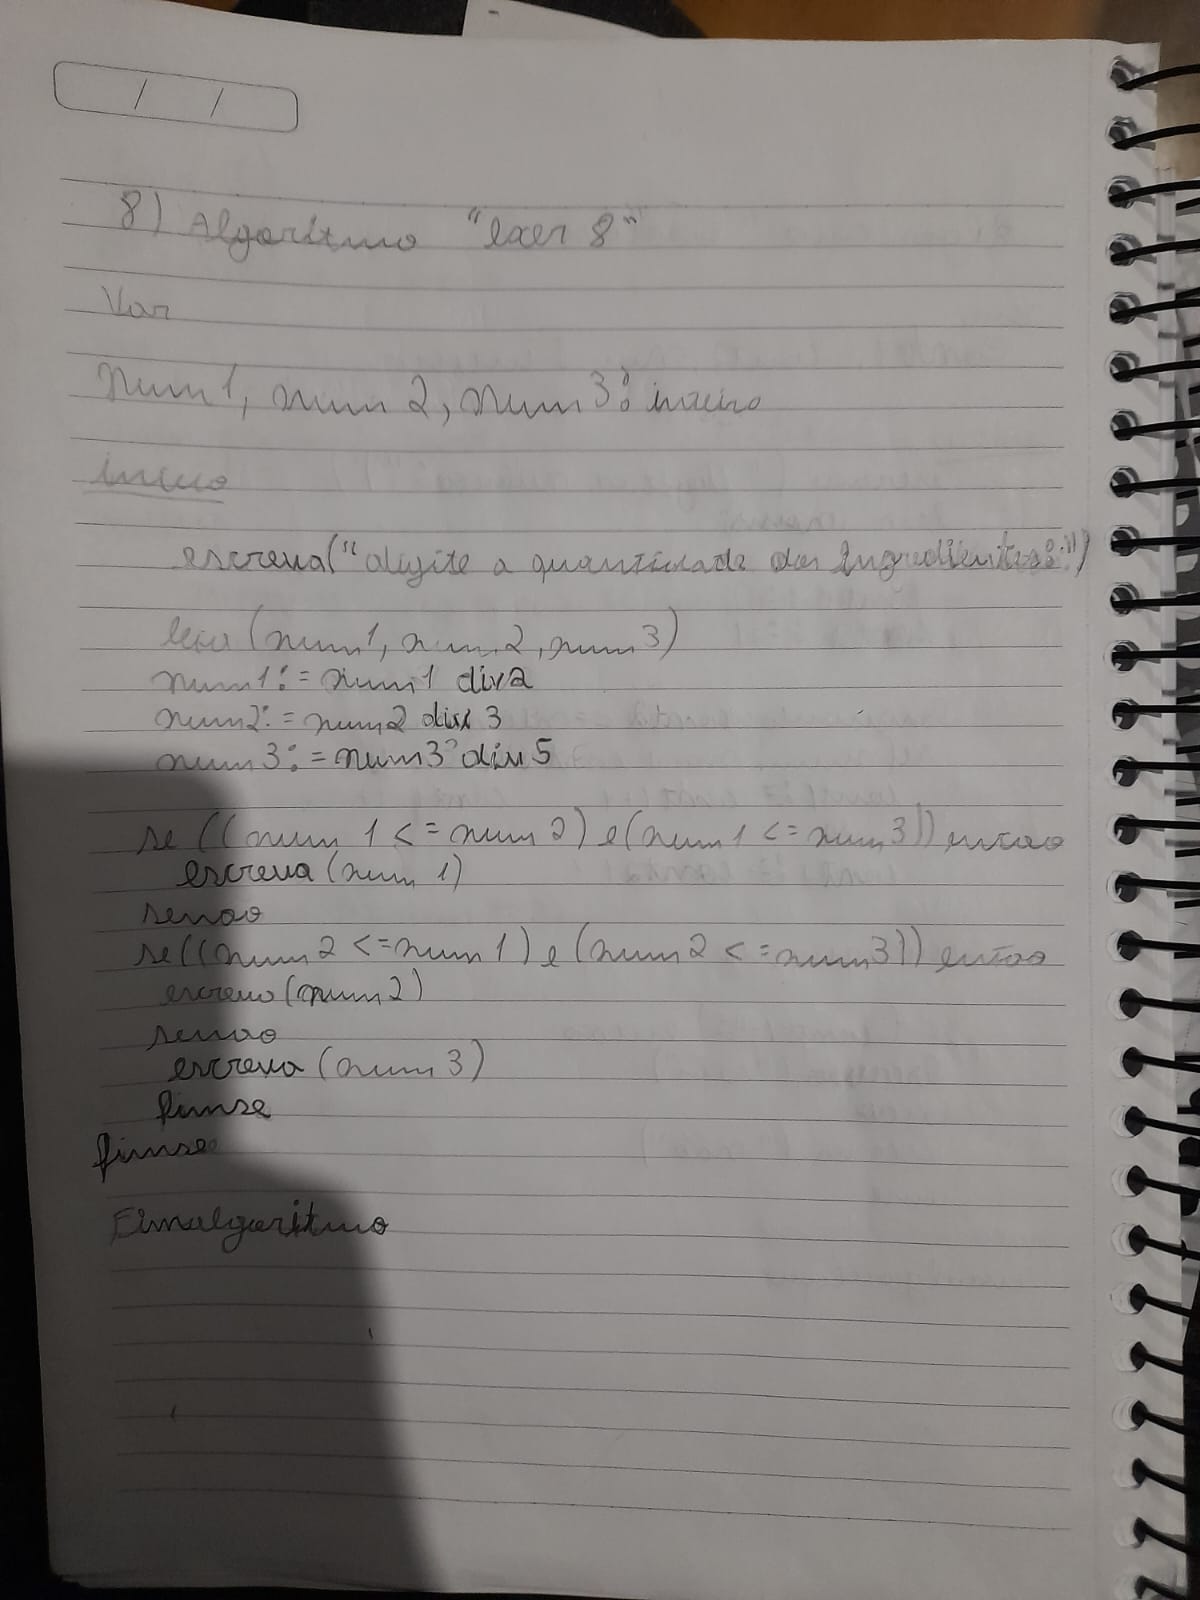 / /
8) Algoritmo "exer 8"
Var
num1, num2, num3: inteiro
inicio
escreva("digite a quantidade dos Ingredientes:")
leia (num1, num2, num3)
num1:= num1 div 2
num2:= num2 div 3
num3:= num3 div 5
se ((num1 <= num2) e (num1 <= num3)) entao
escreva (num1)
senao
se((num2 <= num1) e (num2 <= num3)) entao
escreva (num2)
senao
escreva (num3)
fimse
fimse
Fimalgoritmo